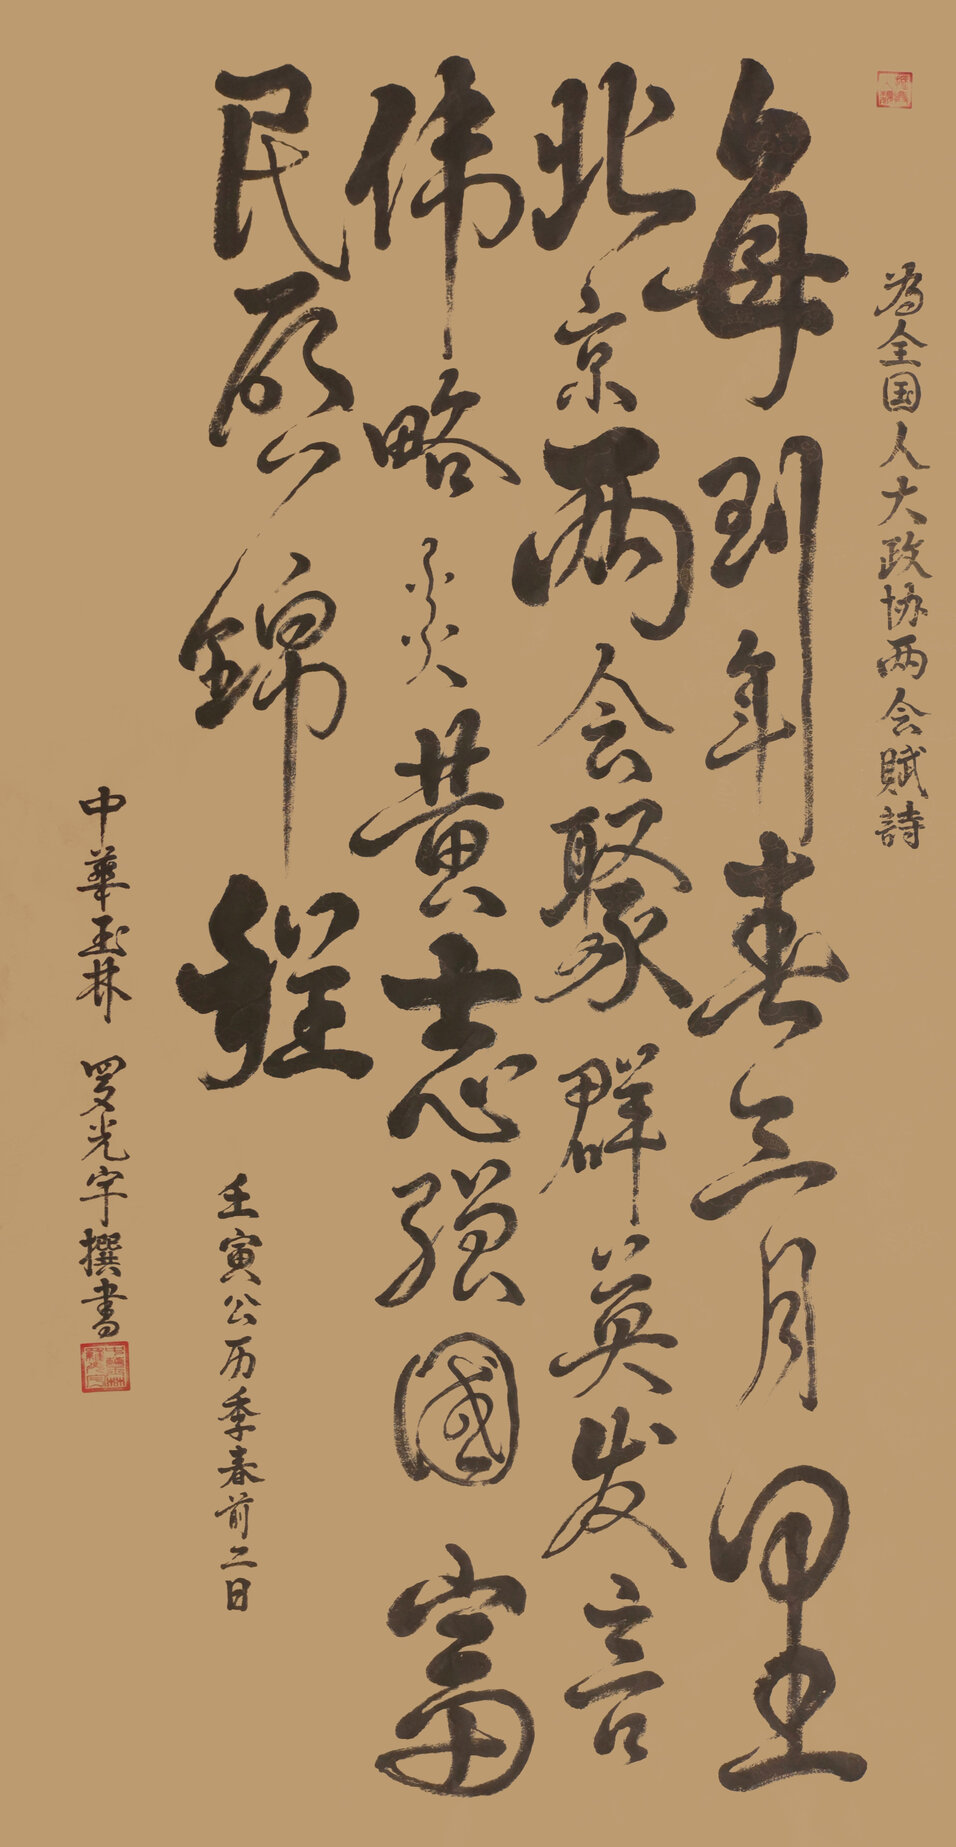 為全国人大政协两会赋詩
每到年春三月里
北京两会聚群英发言
伟略炎黄志强國富
民启錦程
壬寅公历季春前二日
中華玉林 罗光宇撰書